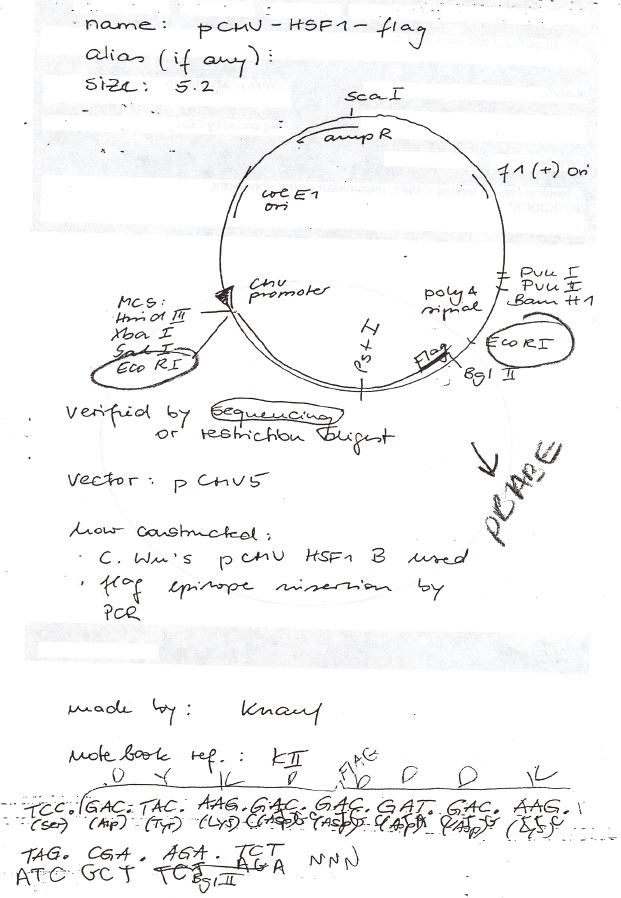 name: pCMV-HSF1-flag
alias (if any):
size: 5.2
Sca I
amp R
f1 (+) Ori
col E1
ori
CMV
promoter
Pvu I
Pvu II
Bam H1
poly A
signal
MCS:
Hind III
Xba I
Sal I
Eco RI
Pst I
Flag
Eco RI
Bgl II
verified by sequencing
or restriction digest
vector: pCMV5
pBABE
how constructed:
· C. Wu's pCMV HSF1 B used
· flag epitope insertion by
PCR
made by: Knauf
Notebook ref.: KII
FLAG
D Y K D D D D K
TCC. GAC. TAC. AAG. GAC. GAC. GAT. GAC. AAG.
(Ser) (Asp) (Tyr) (Lys) (Asp) (Asp) (Asp) (Asp) (Lys)
TAG. CGA. AGA. TCT NNN
ATC GCT TCT AGA
Bgl II